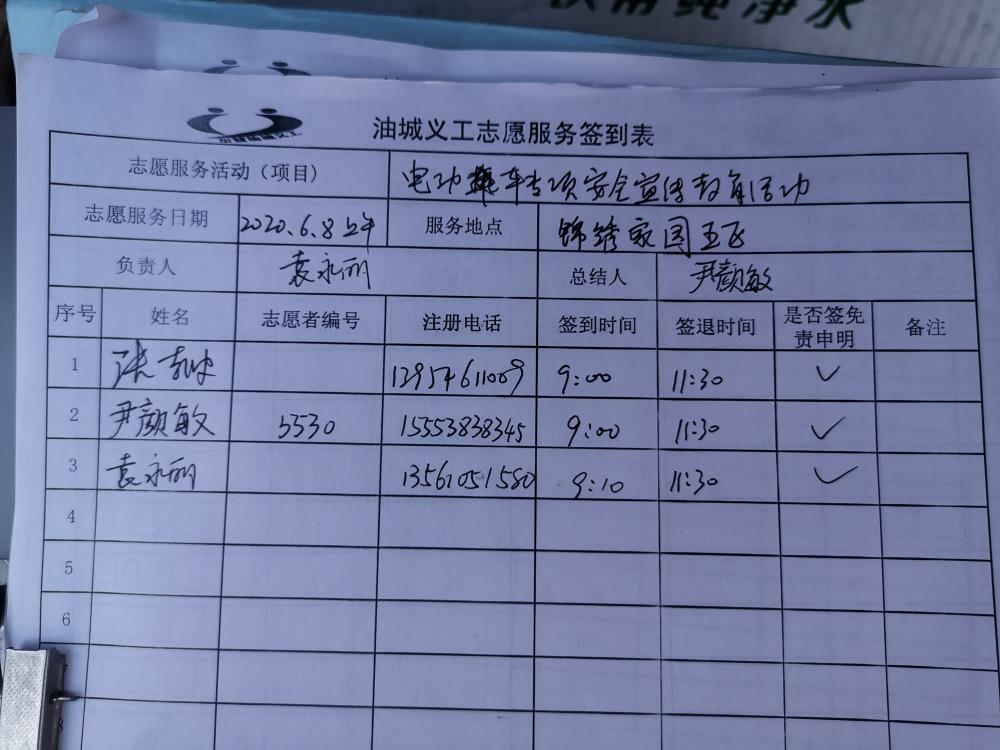 饮用纯净水
油城义工志愿服务签到表
志愿服务活动（项目） 电动车专项安全宣传教育活动
志愿服务日期 2020.6.8上午 服务地点 锦绣家园五区
负责人 袁永丽 总结人 尹颜敏
序号 姓名 志愿者编号 注册电话 签到时间 签退时间 是否签免责申明 备注
1 张 12954611009 9:00 11:30 ✓
2 尹颜敏 5530 15553838345 9:00 11:30 ✓
3 袁永丽 13561051580 9:10 11:30 ✓
4
5
6
8